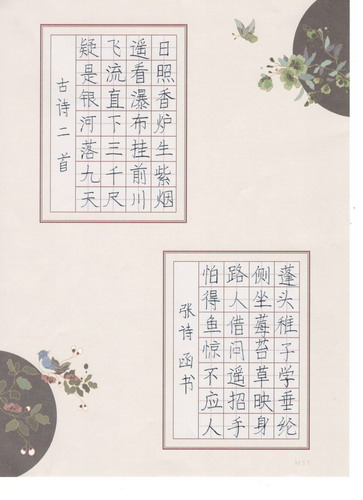 日照香炉生紫烟
遥看瀑布挂前川
飞流直下三千尺
疑是银河落九天
古诗二首
蓬头稚子学垂纶
侧坐莓苔草映身
路人借问遥招手
怕得鱼惊不应人
张诗函书